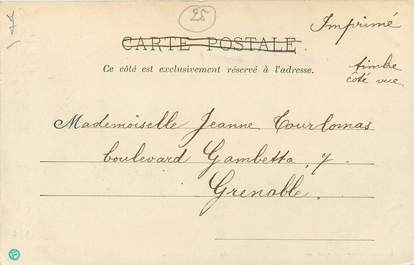 25
Imprimé
CARTE POSTALE
Ce côté est exclusivement réservé à l'adresse.
timbre
côté vue
Mademoiselle Jeanne Tourlomas
boulevard Gambetta, 7
Grenoble.